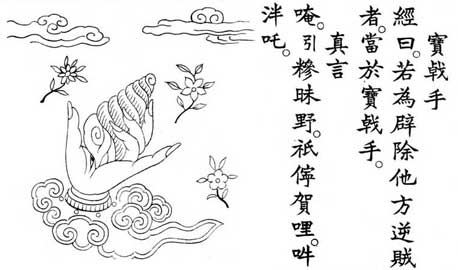 寶戟手
經曰。若為辟除他方逆賊
者。當於寶戟手。
真言
唵。引糝昧野。祇儜賀哩。吽
泮吒。